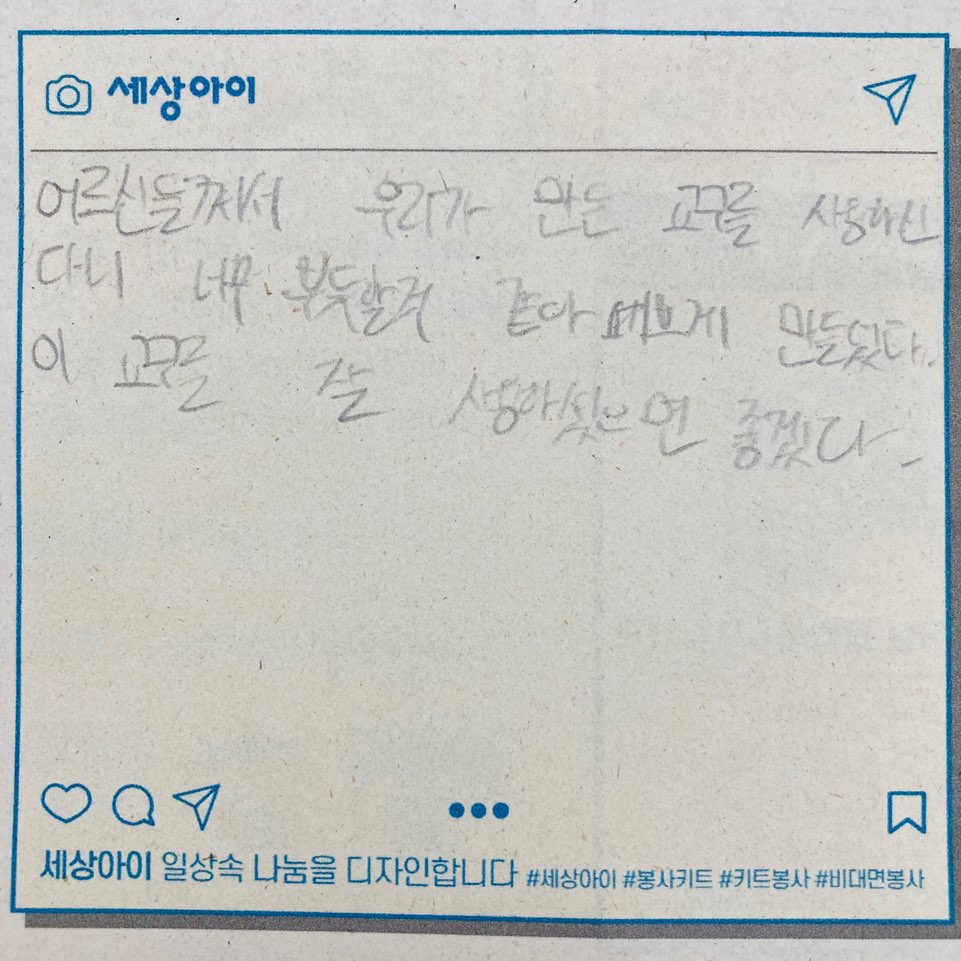 세상아이
어르신들께서 우리가 만든 교구를 사용하신
다니 너무 뿌듯할것 같다 예쁘게 만들었다.
이 교구를 잘 사용하셨으면 좋겠다.
세상아이 일상속 나눔을 디자인합니다 #세상아이 #봉사키트 #키트봉사 #비대면봉사